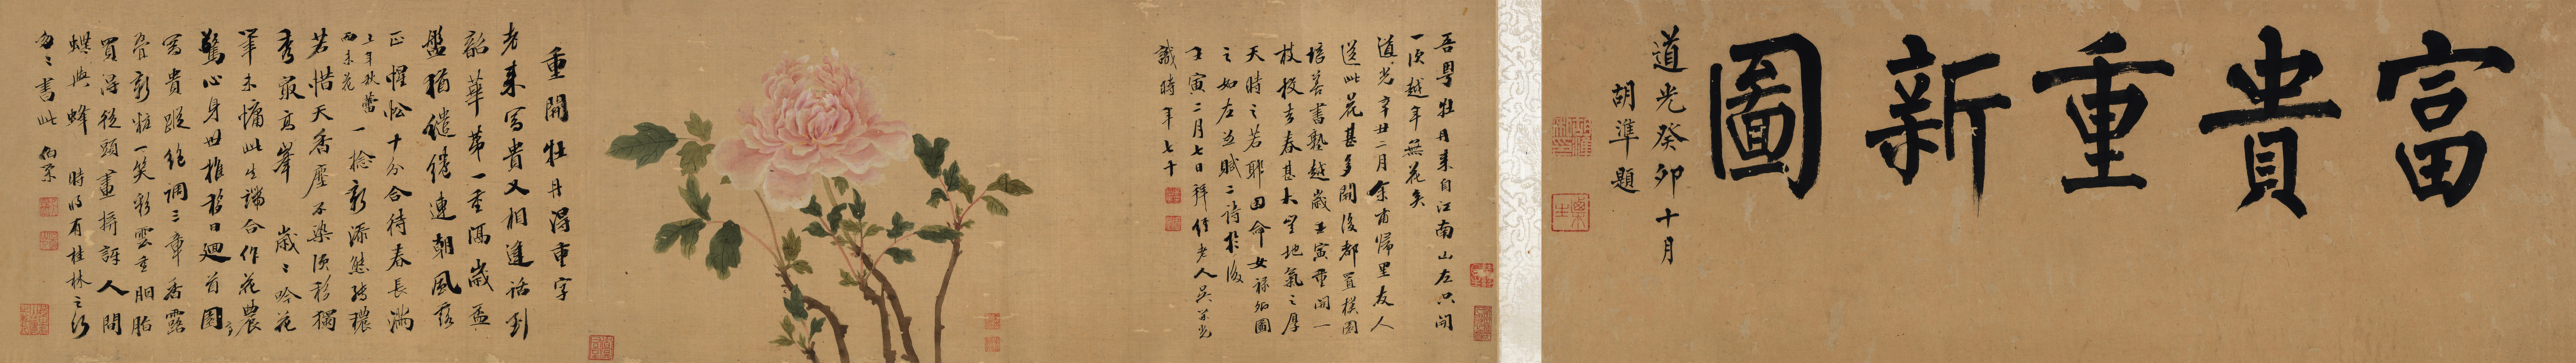 富貴重新圖
道光癸卯十月
胡準題
吾粵牡丹来自江南山左只開
一次越年無花矣
道光辛丑二月余甫歸里友人
送此花甚多開後都置樸園
培書塾越歲壬寅重開一
枝去春甚大豈地氣之厚
天時之若耶因命女祿卿圖
之如左並賦二詩於後
壬寅二月七日拜經老人吳榮光
識時年七十
重開牡丹得重字
老来富貴又相逢話到
韶華第一重歲盈
盤猶繾綣連朝風露
正惺忪十分合待春長滿
上年秋蕾
兩未花
一捻新添態轉穠
若惜天香塵不染須移獨
秀最高峯 歲歲吟花
筆未慵此生端合作花農
驚心身世推移日迴首園亭
富貴蹤絕調三章香露
疊新粧一笑彩雲重胭脂
買得從頭畫人間
蝶與蜂 時將有桂林之行
匆匆書此 伯榮